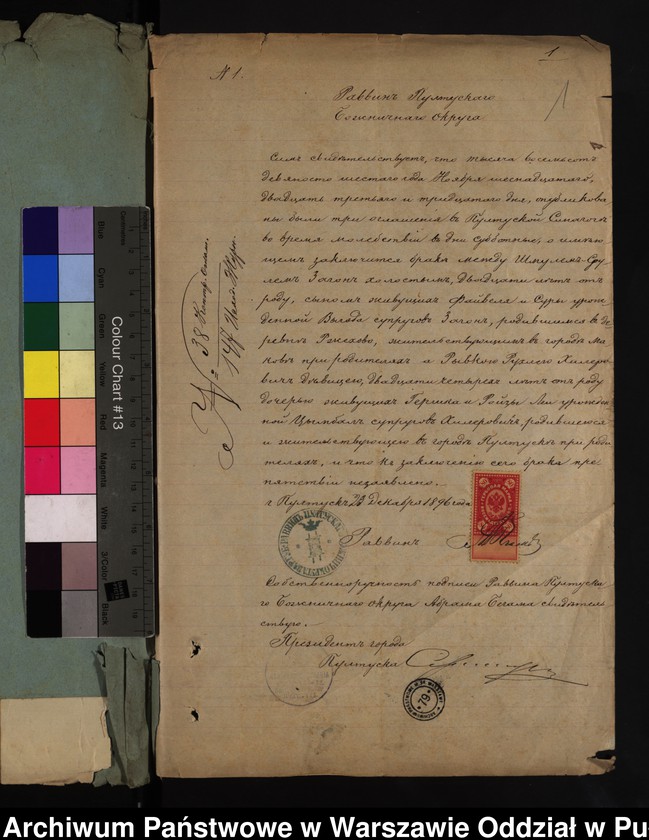 № 1.
1
1
Раввинъ Пултускаго
Божничнаго Округа
Симъ свидѣтельствуетъ, что тысяча восемьсотъ
девяносто шестаго года Ноября шеснадцатаго,
двадцать третьяго и тридцатаго дня, опубликова
ны были три оглашенія въ Пултуской Синагогѣ
во время молебствій въ дни субботные, о имѣю
щемъ заключится бракѣ между Шмулемъ-Сру
лемъ Загонъ холостымъ, двадцати лѣтъ отъ
роду, сыномъ живущихъ Файвеля и Суры урож
денной супруговъ Загонъ, родившимся въ де
ревнѣ жительствующимъ въ городѣ Ма
ковѣ при родителяхъ и Рывкою Рухлею Хилеро
вичъ дѣвицею, двадцати четырехъ лѣтъ отъ роду
дочерью живущихъ Гершка и Ройзы Леи урожден
ной Цымбалъ супруговъ Хилеровичъ, родившеюся
и жительствующею въ городѣ Пултускѣ при роди
теляхъ, и что къ заключенію сего брака пре
пятствій незаявлено.
г. Пултускъ Декабря 1896 года
Раввинъ
Собственноручность подписи Раввина Пултуска
го Божничнаго Округа Абрама свидѣтель
ствую.
Президентъ города
Пултуска
№ 38
79
Colour Chart #13
Blue
Cyan
Green
Yellow
Red
Magenta
White
3/Color
Black
Centimetres
Archiwum Państwowe w Warszawie Oddział w Pu